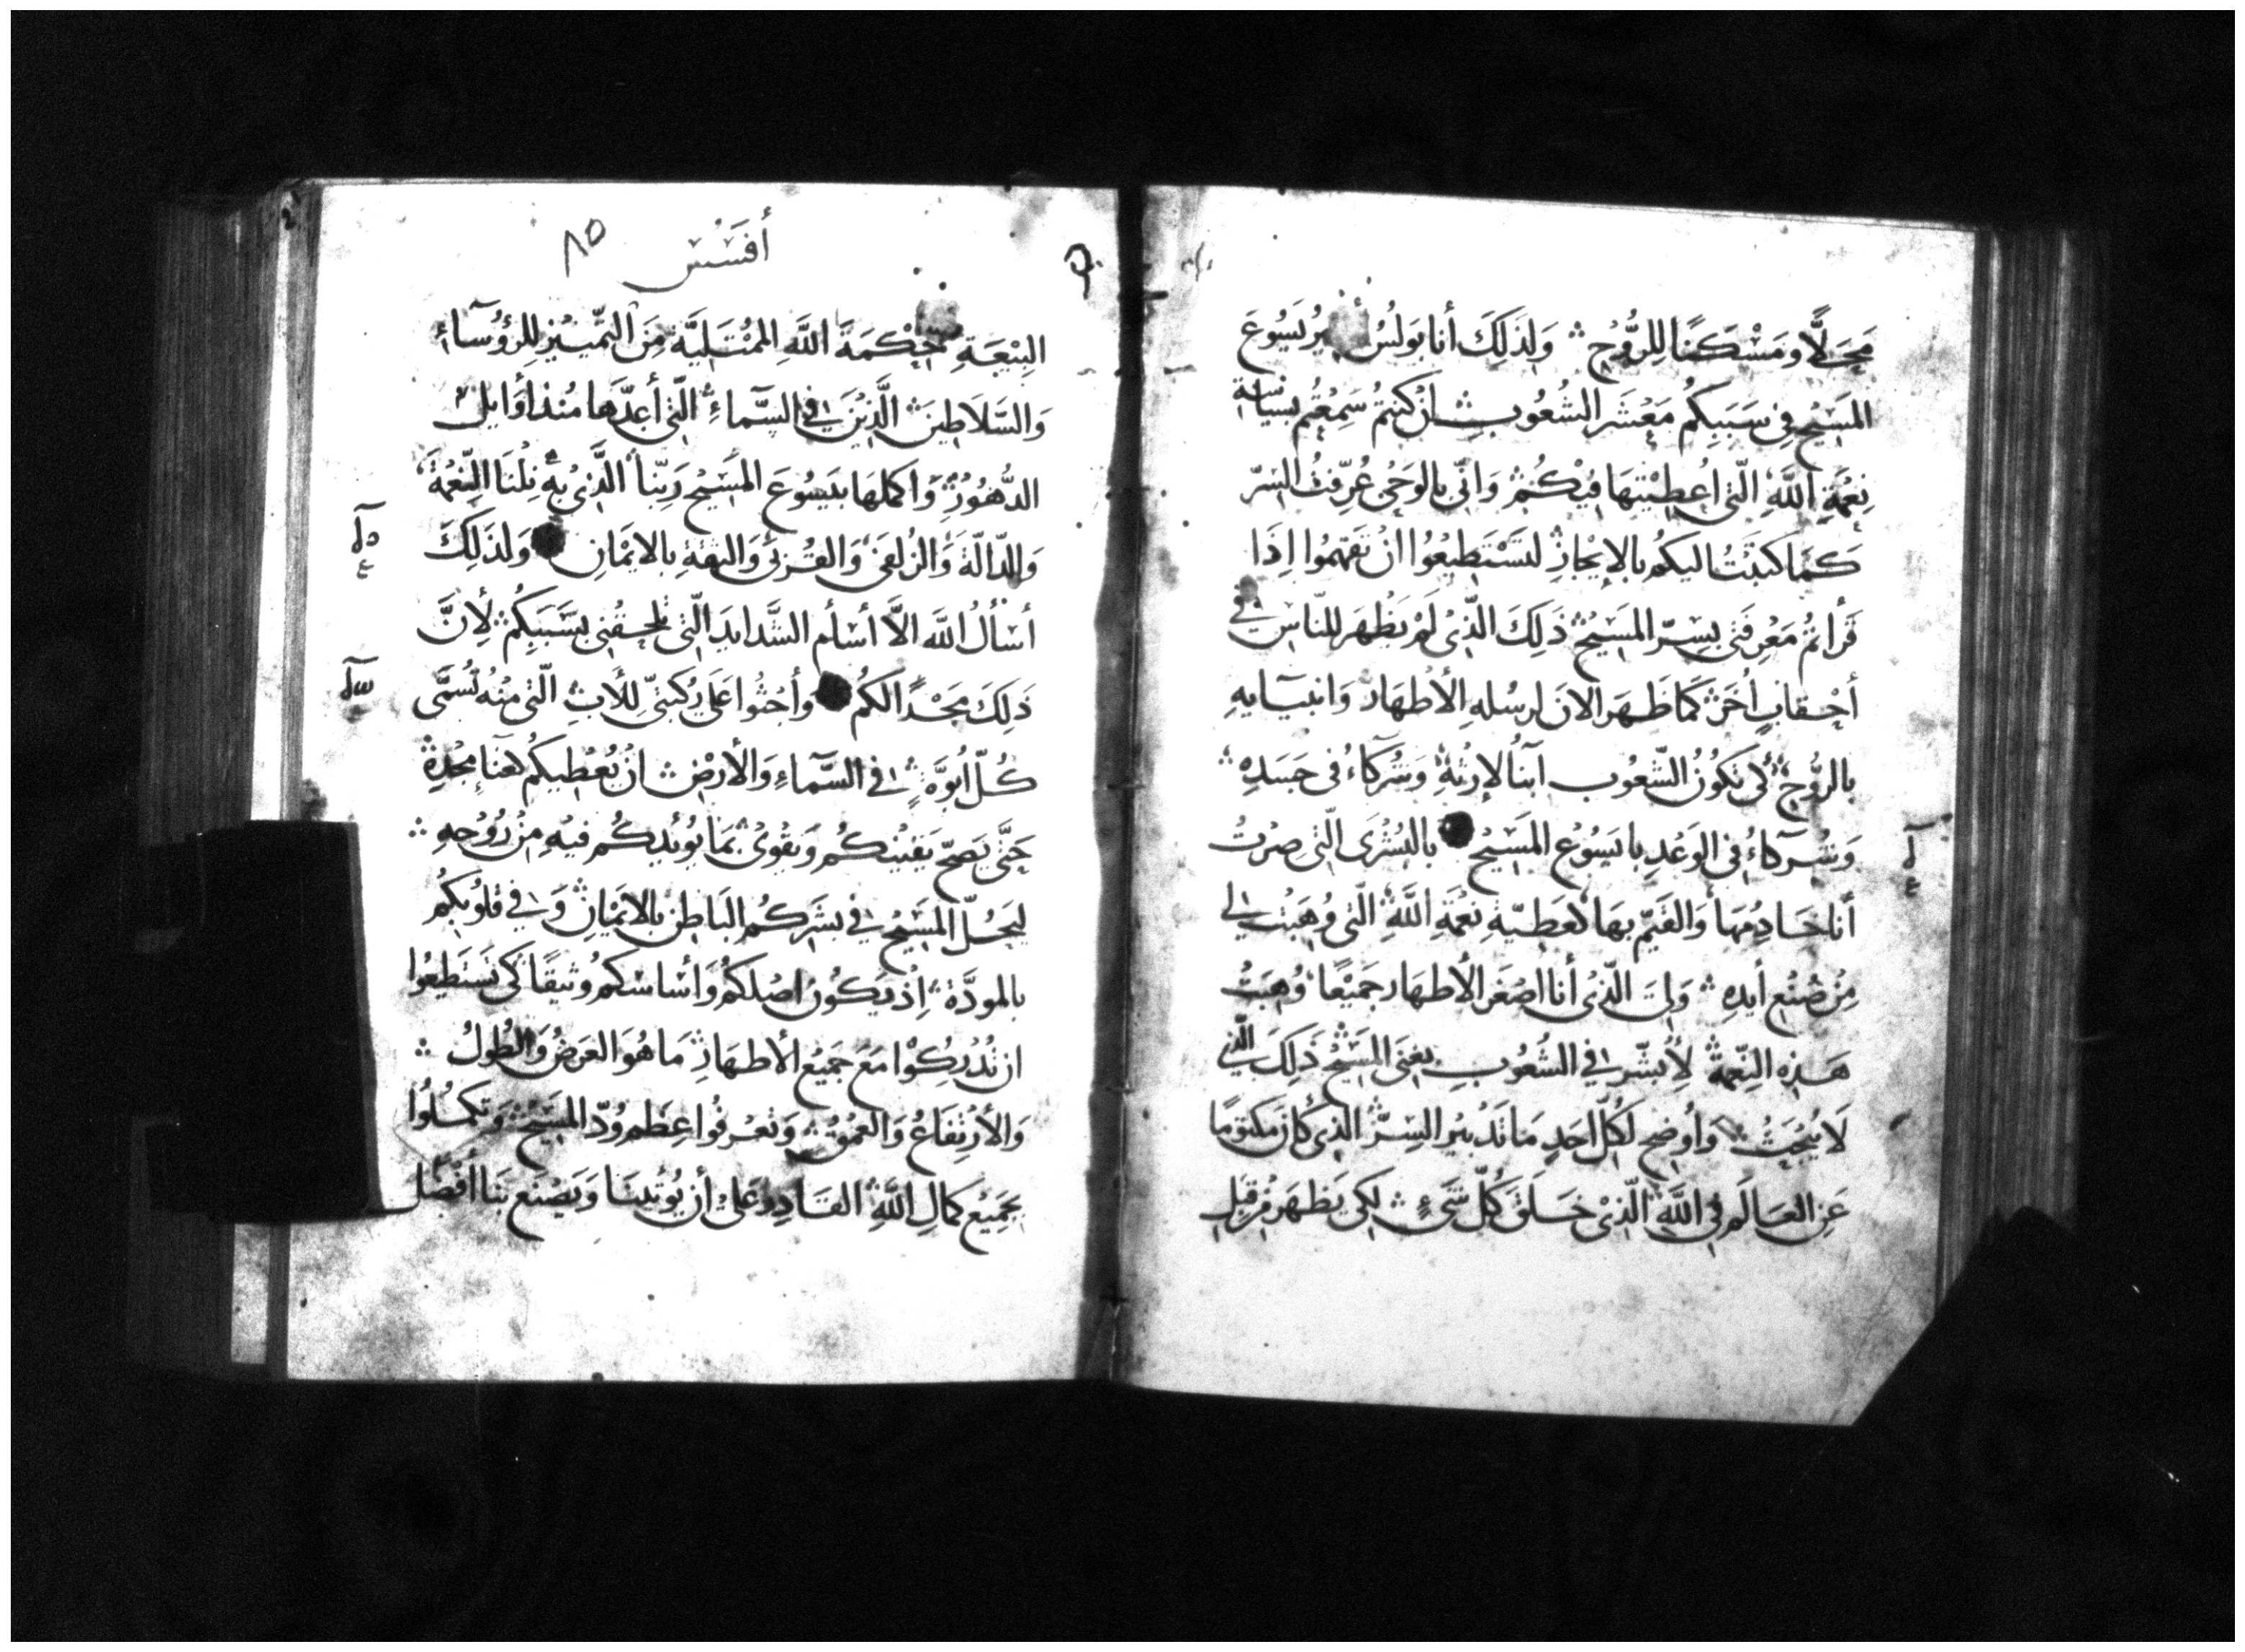 مَحَلًّا وَمَسْكَنًا لِلرُّوْحِ وَلِذَلِكَ أَنا بَولُسُ أسيرُ يَسُوعَ
المَسِيْحِ فِي سَبَبِكُم مَعْشَر الشُعُوبِ انْ كُنتُم سَمِعْتُم بسياسة
نِعْمَةِ اللَّهِ الّتي اُعطِيْتَها فِيْكُمْ وَانّي بالوَحْي عُرِّفتُ السّرّ
كَمَا كتبَتُ اليكُم بالإيْجازِ لتَسْتَطِيعُوا انْ تفهمُوا اِذَا
قَرأتُم مَعْرِفَتي بِسِرّ المَسِيْحِ ذَلِكَ الّذِيْ لَمْ يَظْهَر للنّاسِ في
أحْقابٍ اُخَرْ كَمَا ظَهَر الانَ لرسُلهِ الأطهَار وَانبيَايهِ
بالرُّوْحِ لكَي تكُونُ الشّعُوب أبنآ لإرثهِ وَشُركاءُ في جسَدِهِ
وَشُركاءُ في الوَعْدِ بايَسُوْع المَسِيْحِ بالبُشْرَى الّتي صِرْتُ
أنا خَادِمُهَا وَالقَيّم بهَا كعَطِيّةِ نِعْمَةِ اللَّهِ الّتي وُهِبَت لي
مِنْ صُنْع أيدِهِ وَليَ الّذِيْ أنا اصْغَر الأطهَار جَميْعًا وُهِبَتْ
هَذِهِ النِّعمةُ لأُبشّر في الشُعُوبِ بغِنَى المَسِيْحِ ذَلِكَ الّذي
لَا يُبْحَثُ وَاُوضح لكُلّ احَدٍ مَا تَدْبيْرُ السِرّ الّذِي كانَ مكتومًا
عَنِ العَالَم في اللَّهِ الّذِيْ خَلَقَ كُلّ شَيْءٍ لكي يَظهَر مِنْ قِبَل
أفَسُس ٨٥
البِيْعَةِ حِكْمَةَ اللَّهِ المُمْتَلِيَّة مِنَ التّميْيز لِلرُؤُوسَآءِ
وَالسّلَاطِينَ الَّذِيْنَ في السّمآءِ الّتي أعدَّها مُنْذ أوَايل
الدُّهُوْرِ وَاَكملهَا بيَسُوعَ المَسِيْحِ رَبِّنا الَّذِي بهِ نِلْنَا النِّعْمَةَ
وَالدّالّةَ وَالزُلفَى وَالقُربَى وَالثِقةِ بالايْمَانِ وَلذلِكَ
أسْألُ اللَّه الاَّ أسْأم الشَّدايدَ الّتي تلحقُني بسَبَبِكُم لأِنَّ
ذلِكَ مَجْدًا لكُم وأجْثُوا عَلَى رُكبَتيّ لِلأبِ الّتي مِنْهُ تُسَمَّى
كُلّ أبُوَّةٍ في السَّمآءِ وَالأرْضِ ان يُعْطِيكُم لغنآءِ مَجْدِهِ
حَتَّى يَصِحّ يَقيْنكُم وَيَقْوَى بمَا يُؤَيدكُم فيْهِ مِنْ رُوْحِهِ
ليَحُلّ المَسِيْحُ في بشَرَكُم البَاطن بالايْمَانِ وَفي قلُوبكُم
بالمودَّةِ اِذ يَكُون اصْلكُم وَأسَاسكم وثيقًا كي تسْتَطِيعُوا
ان تُدْرِكُوْا مَعَ جَميْع الأطهَارِ مَا هُوَ العَرضُ وَالطُولُ
وَالأرْتِفَاعُ وَالعُمْقُ وَتعْرفُوا عِظَم وُدّ المَسِيْحِ وَتكمُلُوا
بجَمِيْع كمالِ اللَّهِ القَادِر عَلىْ أن يُؤتينَا وَيَصْنَع بنَا أفضَل